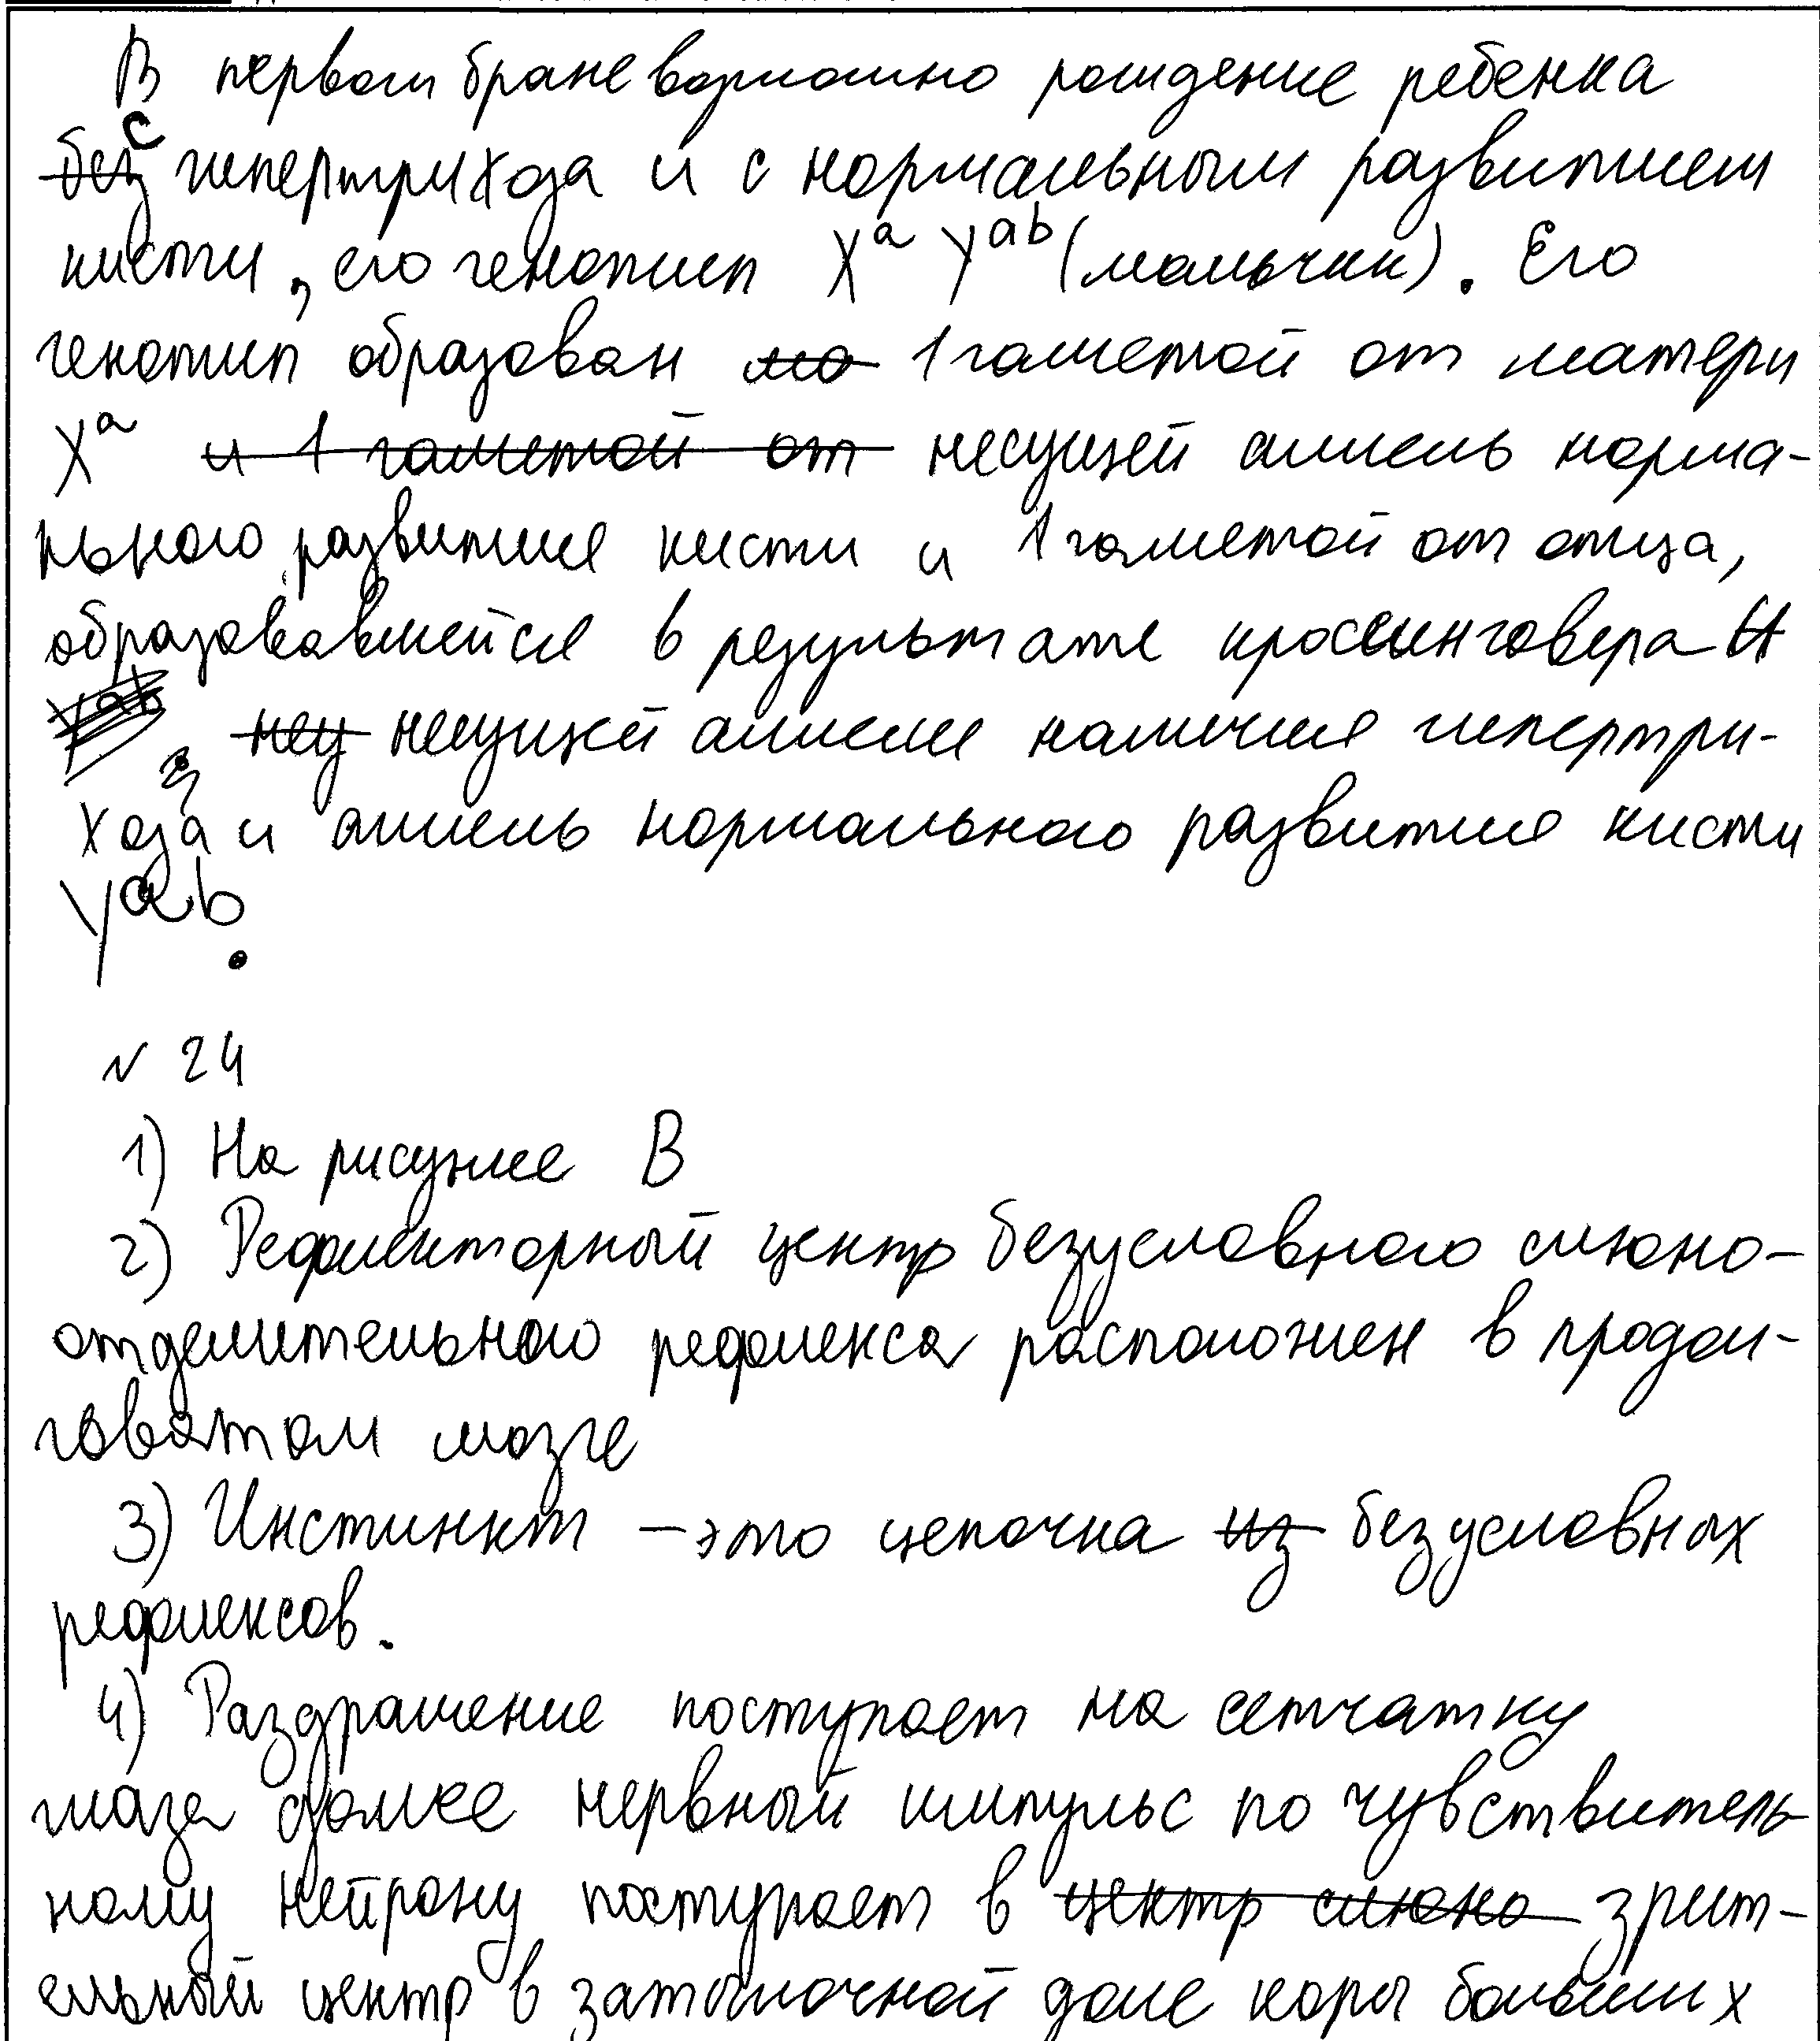 В первом браке возможно рождение ребенка
с гипертрихоза и с нормальным развитием
кисти, его генотип Xᵃ Yᵃᵇ (мальчик). Его
генотип образован 1 гаметой от матери
Xᵃ несущей аллель норма-
льного развития кисти и 1 гаметой от отца,
образовавшейся в результате кроссинговера
несущей аллель наличия гипертри-
хоза и аллель нормального развития кисти
Yᵃᵇ.
№ 24
1) На рисунке В
2) Рефлекторный центр безусловного слюно-
отделительного рефлекса расположен в продол-
говатом мозге
3) Инстинкт – это цепочка безусловных
рефлексов.
4) Раздражение поступает на сетчатку
глаза далее нервный импульс по чувствитель
ному нейрону поступает в зрит-
ельный центр в затылочной доле коры больших